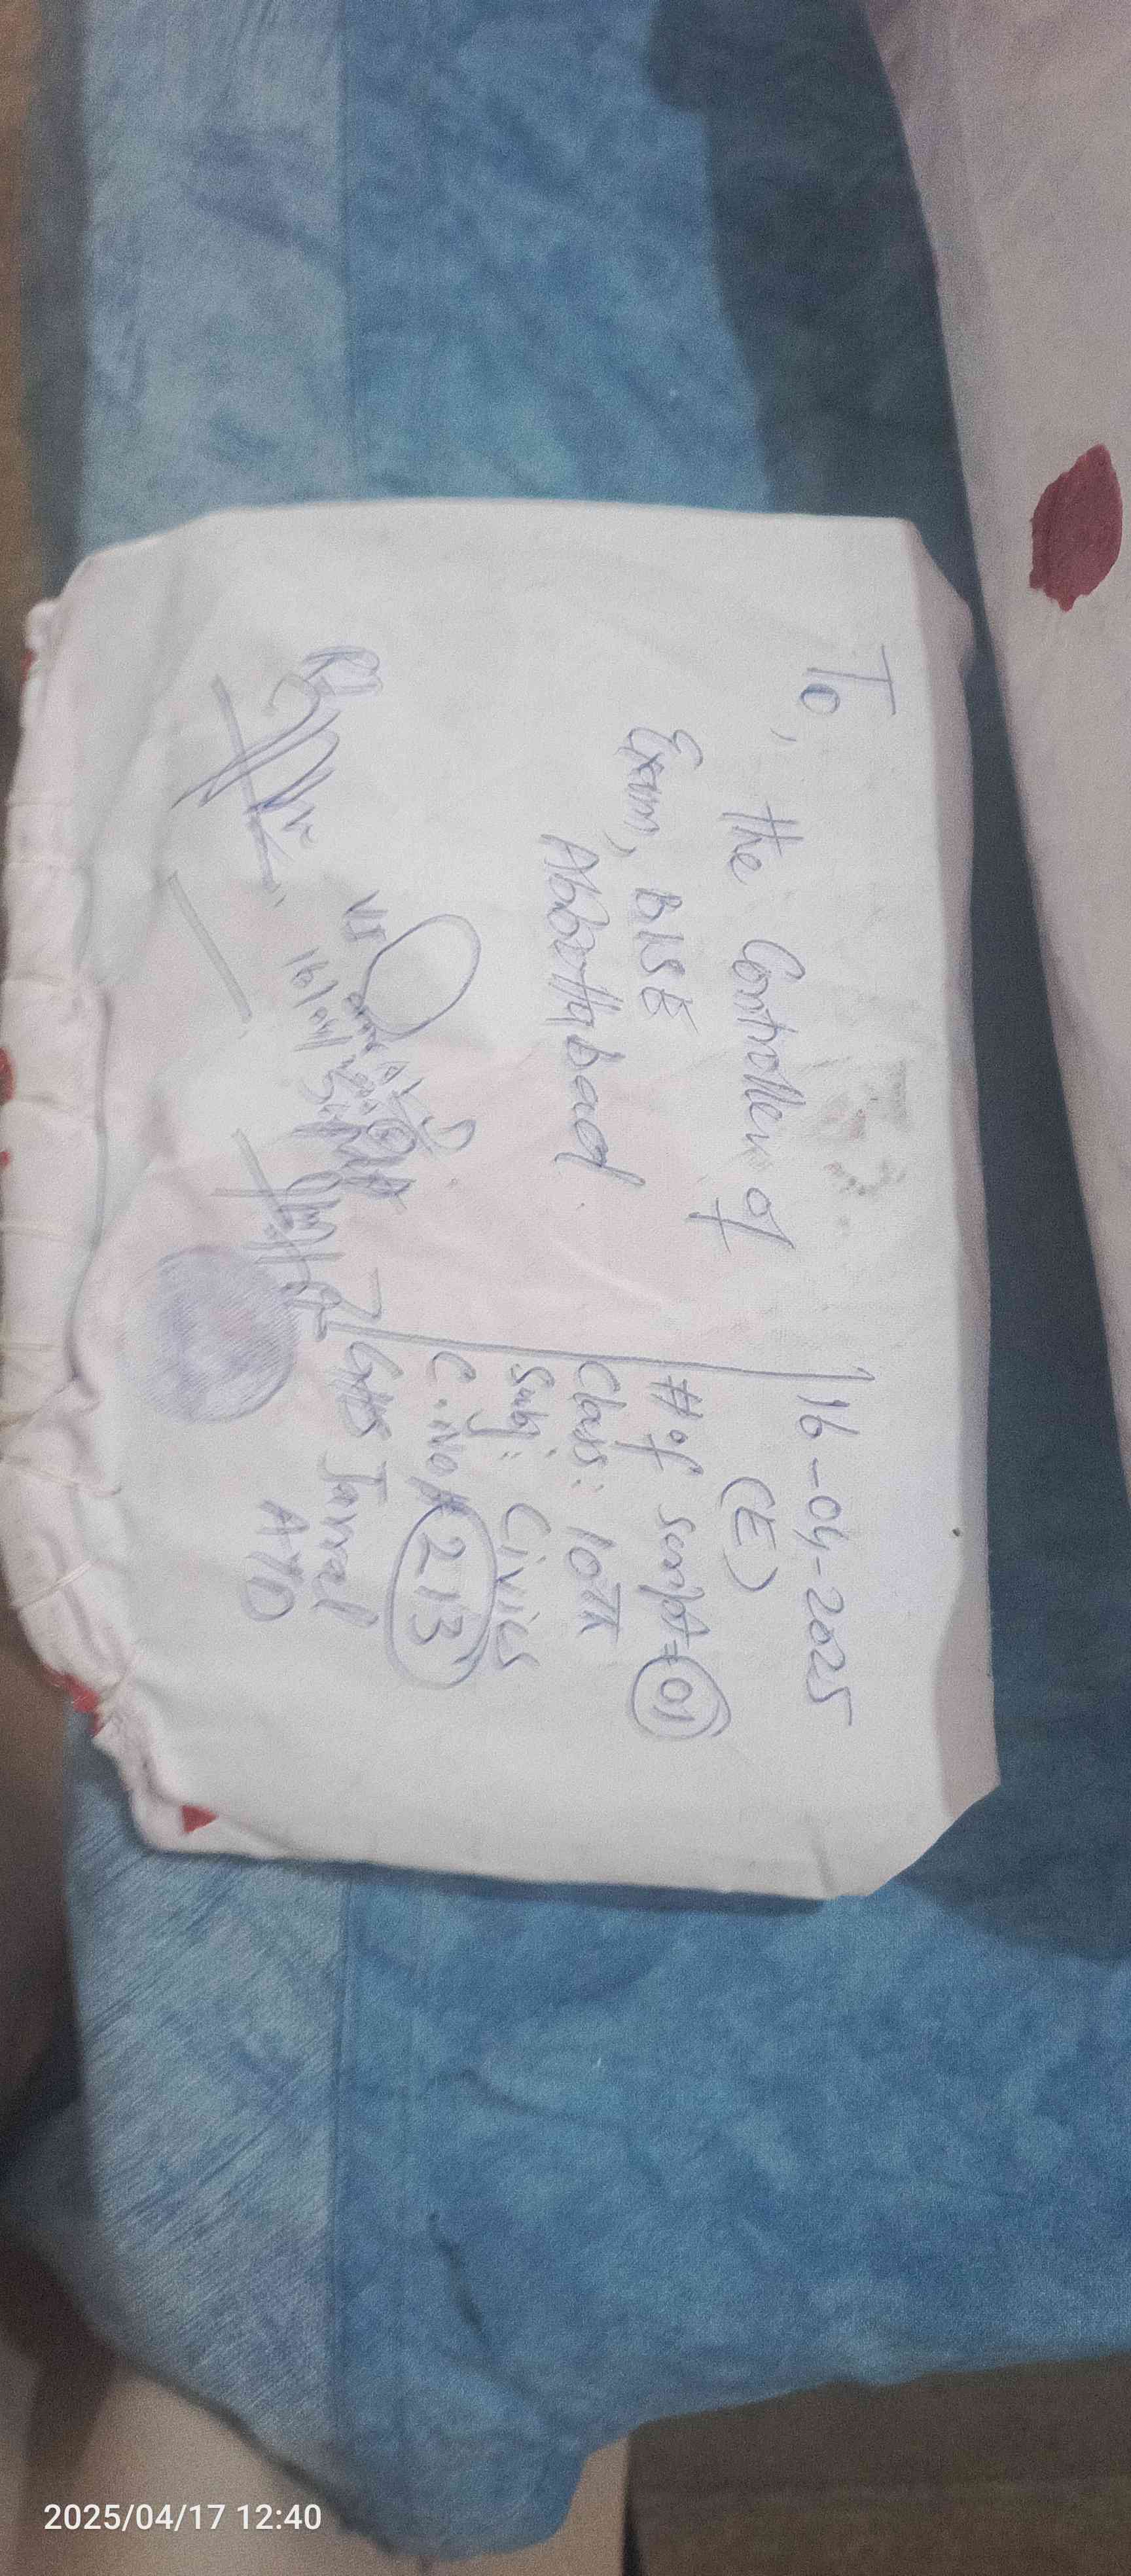 To,
the Controller of
Exam, BISE
Abbottabad
16-04-2025
(E)
# of script = 01
Class: 10th
Subj: Civics
C. No # 213
GHS Jarral
ATD
16/04/
2025/04/17 12:40